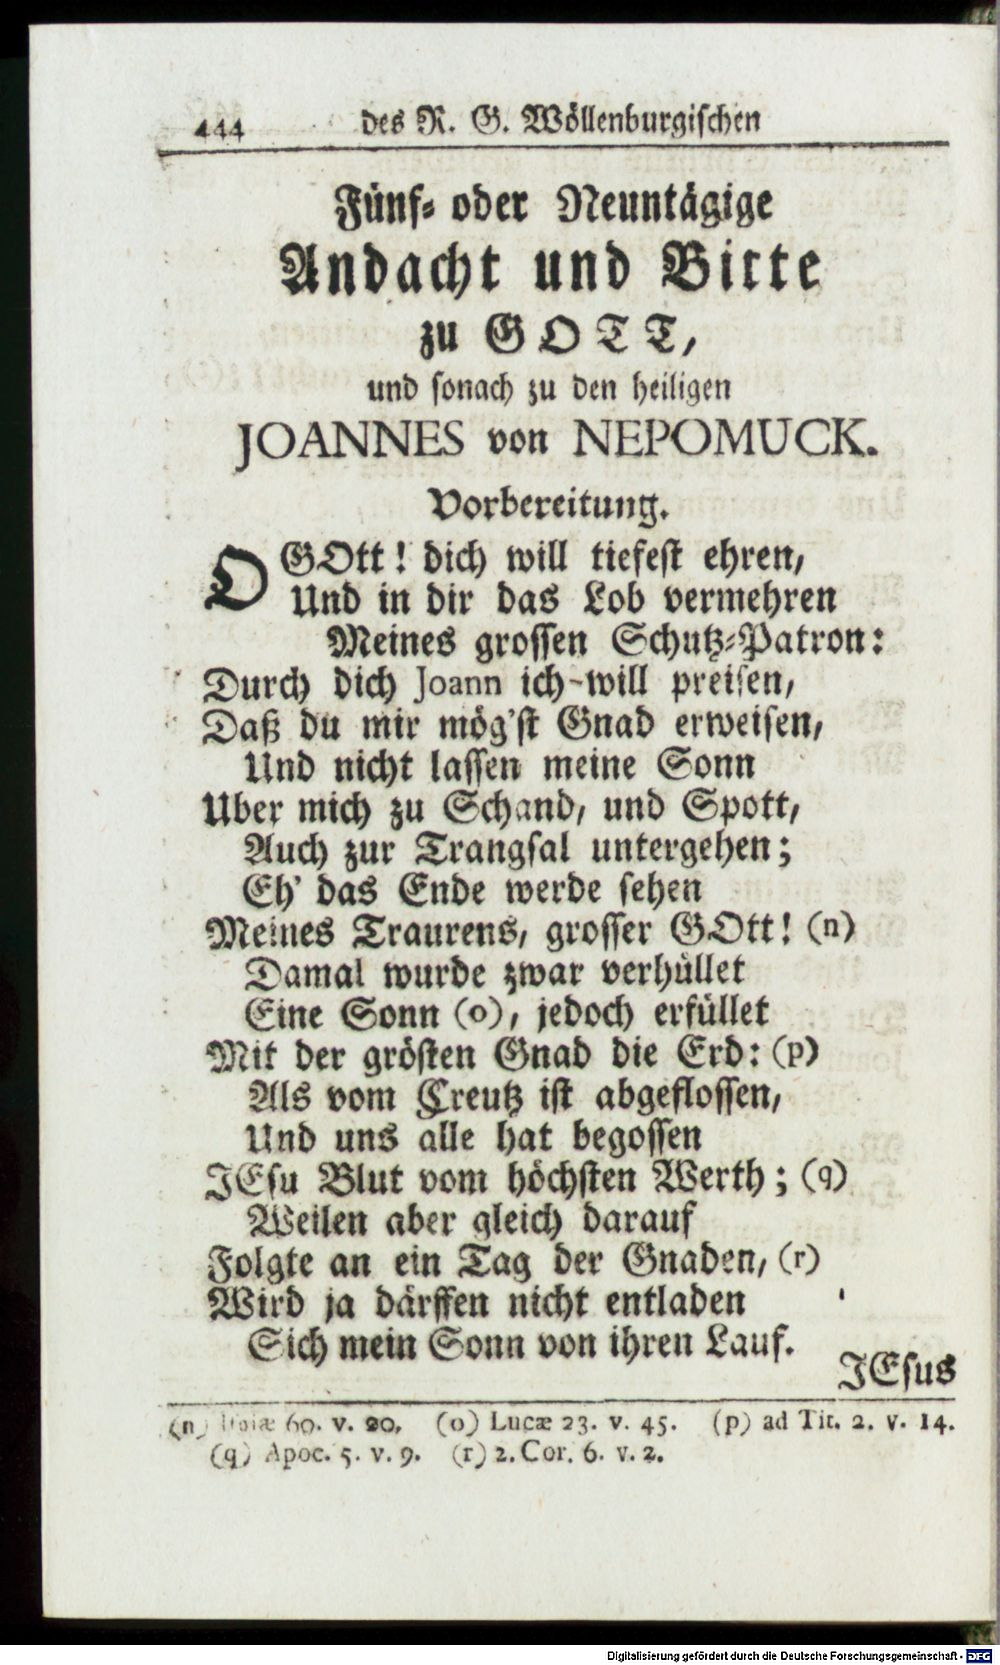 444 des R. G. Wöllenburgischen
Fünf- oder Neuntägige
Andacht und Bitte
zu GOTT,
und sonach zu den heiligen
JOANNES von NEPOMUCK.
Vorbereitung.
O GOtt! dich will tiefest ehren,
Und in dir das Lob vermehren
Meines grossen Schutz-Patron:
Durch dich Joann ich will preisen,
Daß du mir mög'st Gnad erweisen,
Und nicht lassen meine Sonn
Uber mich zu Schand, und Spott,
Auch zur Trangsal untergehen;
Eh' das Ende werde sehen
Meines Traurens, grosser GOtt! (n)
Damal wurde zwar verhüllet
Eine Sonn (o), jedoch erfüllet
Mit der grösten Gnad die Erd: (p)
Als vom Creutz ist abgeflossen,
Und uns alle hat begossen
JEsu Blut vom höchsten Werth; (q)
Weilen aber gleich darauf
Folgte an ein Tag der Gnaden, (r)
Wird ja därffen nicht entladen
Sich mein Sonn von ihren Lauf.
JEsus
(n) 60. v. 20. (o) Lucæ 23. v. 45. (p) ad Tit. 2. v. 14.
(q) Apoc. 5. v. 9. (r) 2. Cor. 6. v. 2.
Digitalisierung gefördert durch die Deutsche Forschungsgemeinschaft - DFG